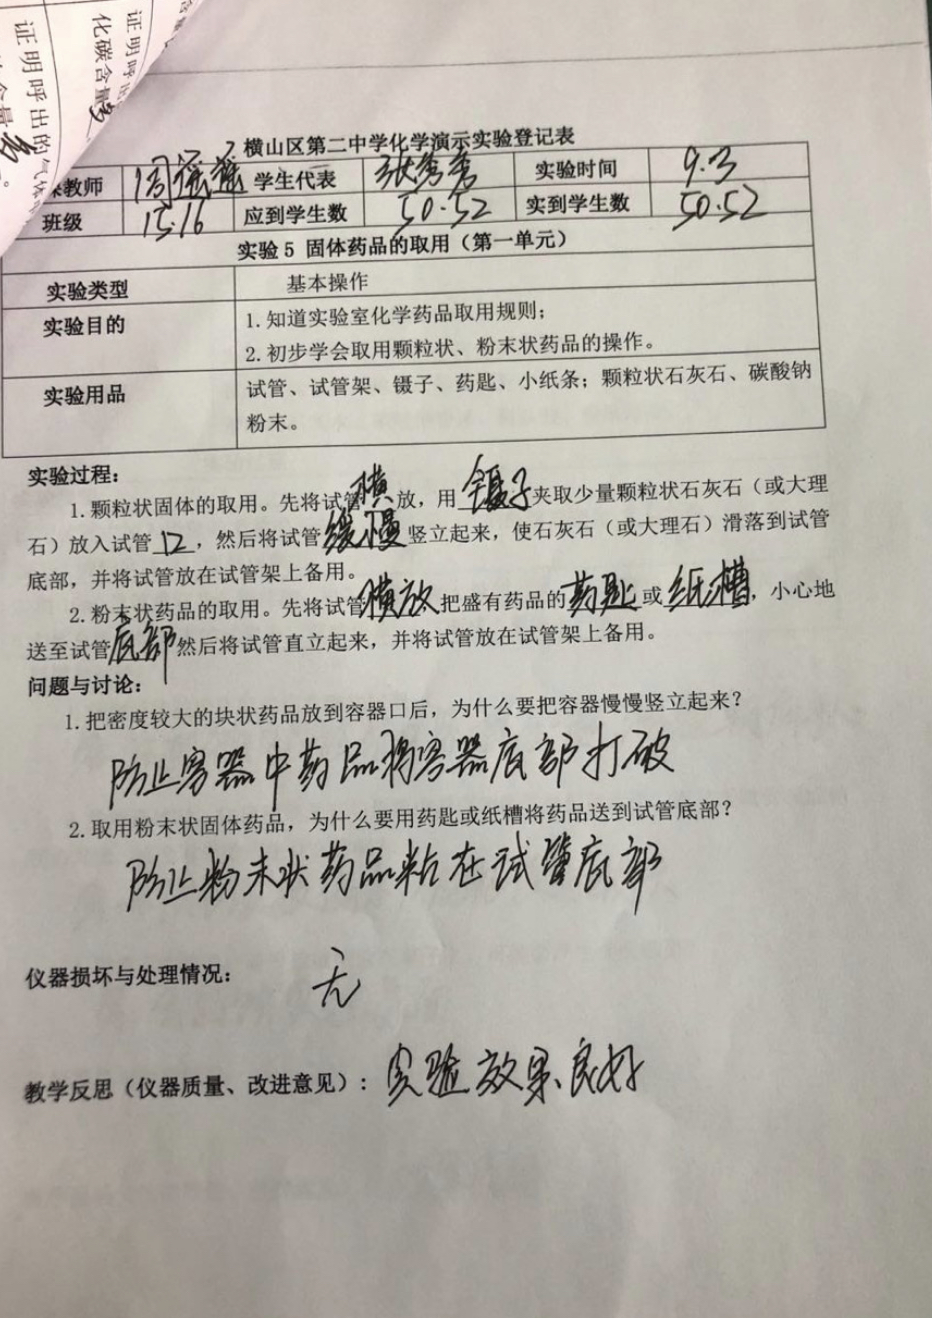 证明呼出的气体
含量多
证明呼出
化碳含量多
横山区第二中学化学演示实验登记表
课教师 周瑶瑶 学生代表 张秀秀 实验时间 9.3
班级 15.16 应到学生数 50.52 实到学生数 50.52
实验5 固体药品的取用（第一单元）
实验类型 基本操作
实验目的 1.知道实验室化学药品取用规则；
2.初步学会取用颗粒状、粉末状药品的操作。
实验用品 试管、试管架、镊子、药匙、小纸条；颗粒状石灰石、碳酸钠
粉末。
实验过程：
1.颗粒状固体的取用。先将试管横放，用镊子夹取少量颗粒状石灰石（或大理
石）放入试管口，然后将试管缓慢竖立起来，使石灰石（或大理石）滑落到试管
底部，并将试管放在试管架上备用。
2.粉末状药品的取用。先将试管横放把盛有药品的药匙或纸槽，小心地
送至试管底部然后将试管直立起来，并将试管放在试管架上备用。
问题与讨论：
1.把密度较大的块状药品放到容器口后，为什么要把容器慢慢竖立起来？
防止容器中药品将容器底部打破
2.取用粉末状固体药品，为什么要用药匙或纸槽将药品送到试管底部？
防止粉末状药品粘在试管底部
仪器损坏与处理情况： 无
教学反思（仪器质量、改进意见）：实验效果良好